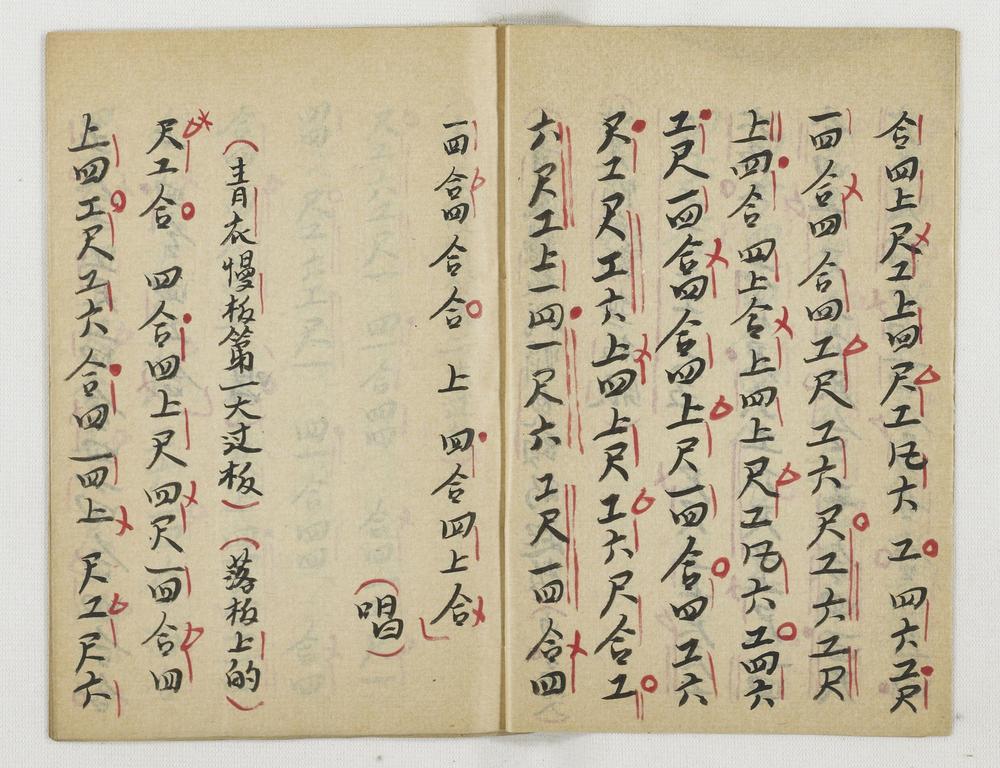 合四上尺工上四尺工凡六工四六工尺
一四合四合四工尺工六尺工六工尺
上四合四上合上四上尺工凡六工四六
工尺一四合四合四上尺一四合四工六
尺工尺工六上四上尺工六尺合工
六尺工上一四一尺六工尺一四合四
一四合四合合上四合四上合
（唱）
（青衣慢板第一大过板）（落板上的）
尺工合四合四上尺四尺一四合四
上四工尺工六合四一四上尺工尺六